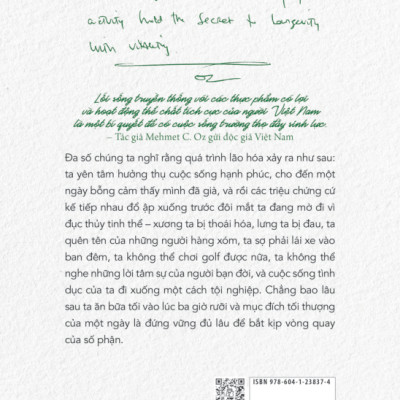 activity hold the secret to longevity
with vitality
Oz
Lối sống truyền thống với các thực phẩm có lợi
và hoạt động thể chất tích cực của người Việt Nam
là một bí quyết để có cuộc sống trường thọ đầy sinh lực.
– Tác giả Mehmet C. Oz gửi độc giả Việt Nam
Đa số chúng ta nghĩ rằng quá trình lão hóa xảy ra như sau:
ta yên tâm hưởng thụ cuộc sống hạnh phúc, cho đến một
ngày bỗng cảm thấy mình đã già, và rồi các triệu chứng cứ
kế tiếp nhau đổ ập xuống trước đôi mắt ta đang mờ đi vì
đục thủy tinh thể – xương ta bị thoái hóa, lưng ta bị đau, ta
quên tên của những người hàng xóm, ta sợ phải lái xe vào
ban đêm, ta không thể chơi golf được nữa, ta không thể
nghe những lời tâm sự của người bạn đời, và cuộc sống tình
dục của ta đi xuống một cách tội nghiệp. Chẳng bao lâu
sau ta ăn bữa tối vào lúc ba giờ rưỡi và mục đích tối thượng
của một ngày là đứng vững đủ lâu để bắt kịp vòng quay
của số phận.
ISBN 978-604-1-23837-4